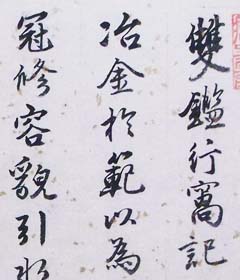 雙鑑行窩記
冶金於範以為
冠修容貌引水